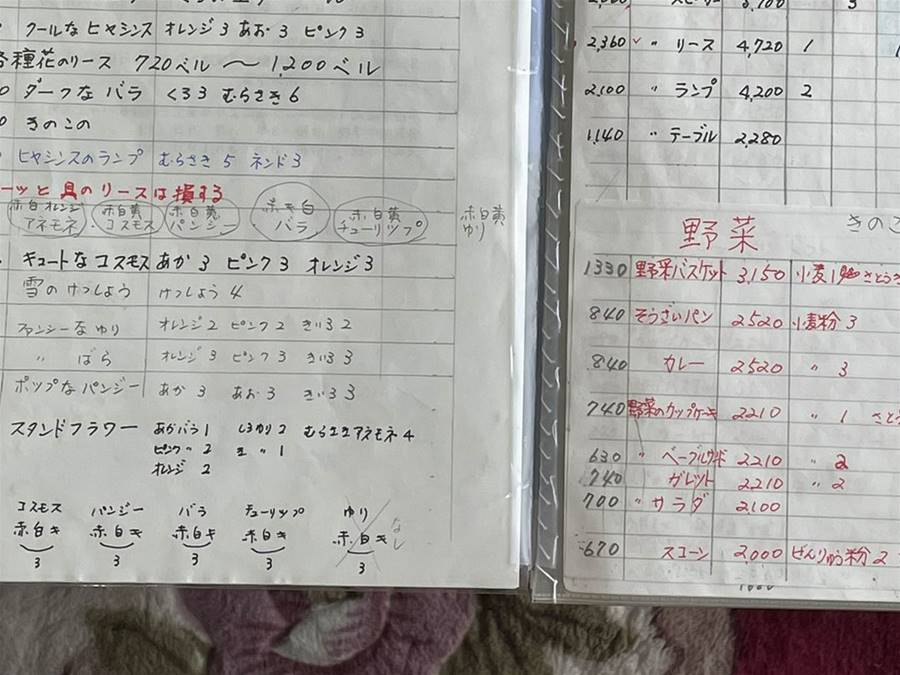 クールなヒヤシンス オレンジ3 あお3 ピンク3
各種花のリース 720ベル 〜 1,200ベル
ダークなバラ くろ3 むらさき6
きのこの
ヒヤシンスのランプ むらさき5 ネンド3
ーツと貝のリースは損する
赤白オレンジ アネモネ・赤白黄 コスモス・赤白黄 パンジー 赤モ白 バラ 赤・白黄 チューリップ 赤白黄 ゆり
キュートなコスモス あか3 ピンク3 オレンジ3
雪のけっしょう けっしょう4
ファンシーなゆり オレンジ2 ピンク2 きいろ2
〃 ばら オレンジ3 ピンク3 きいろ3
ポップなパンジー あか3 あお3 きいろ3
スタンドフラワー あかバラ1 しろゆり2 むらさきアネモネ4
ピンク〃2 き〃1
オレンジ2
コスモス パンジー バラ チューリップ ゆり
赤白き 赤白き 赤白き 赤白き 赤・白き なし
3 3 3 3 3
スピーカー 3
2,360 〃 リース 4,720 1
2,100 〃 ランプ 4,200 2
1,140 〃 テーブル 2,280
野菜
きのこ
1330 野菜バスケット 3,150 小麦1 さとう
840 そうざいパン 2520 小麦粉3
840 カレー 2520 〃 3
740 野菜のカップケーキ 2210 〃 1 さとう
630 〃 ベーグルサンド 2210 〃 2
740 ガレット 2210 〃 2
700 〃 サラダ 2100
670 スコーン 2,000 ぜんりゅう粉2